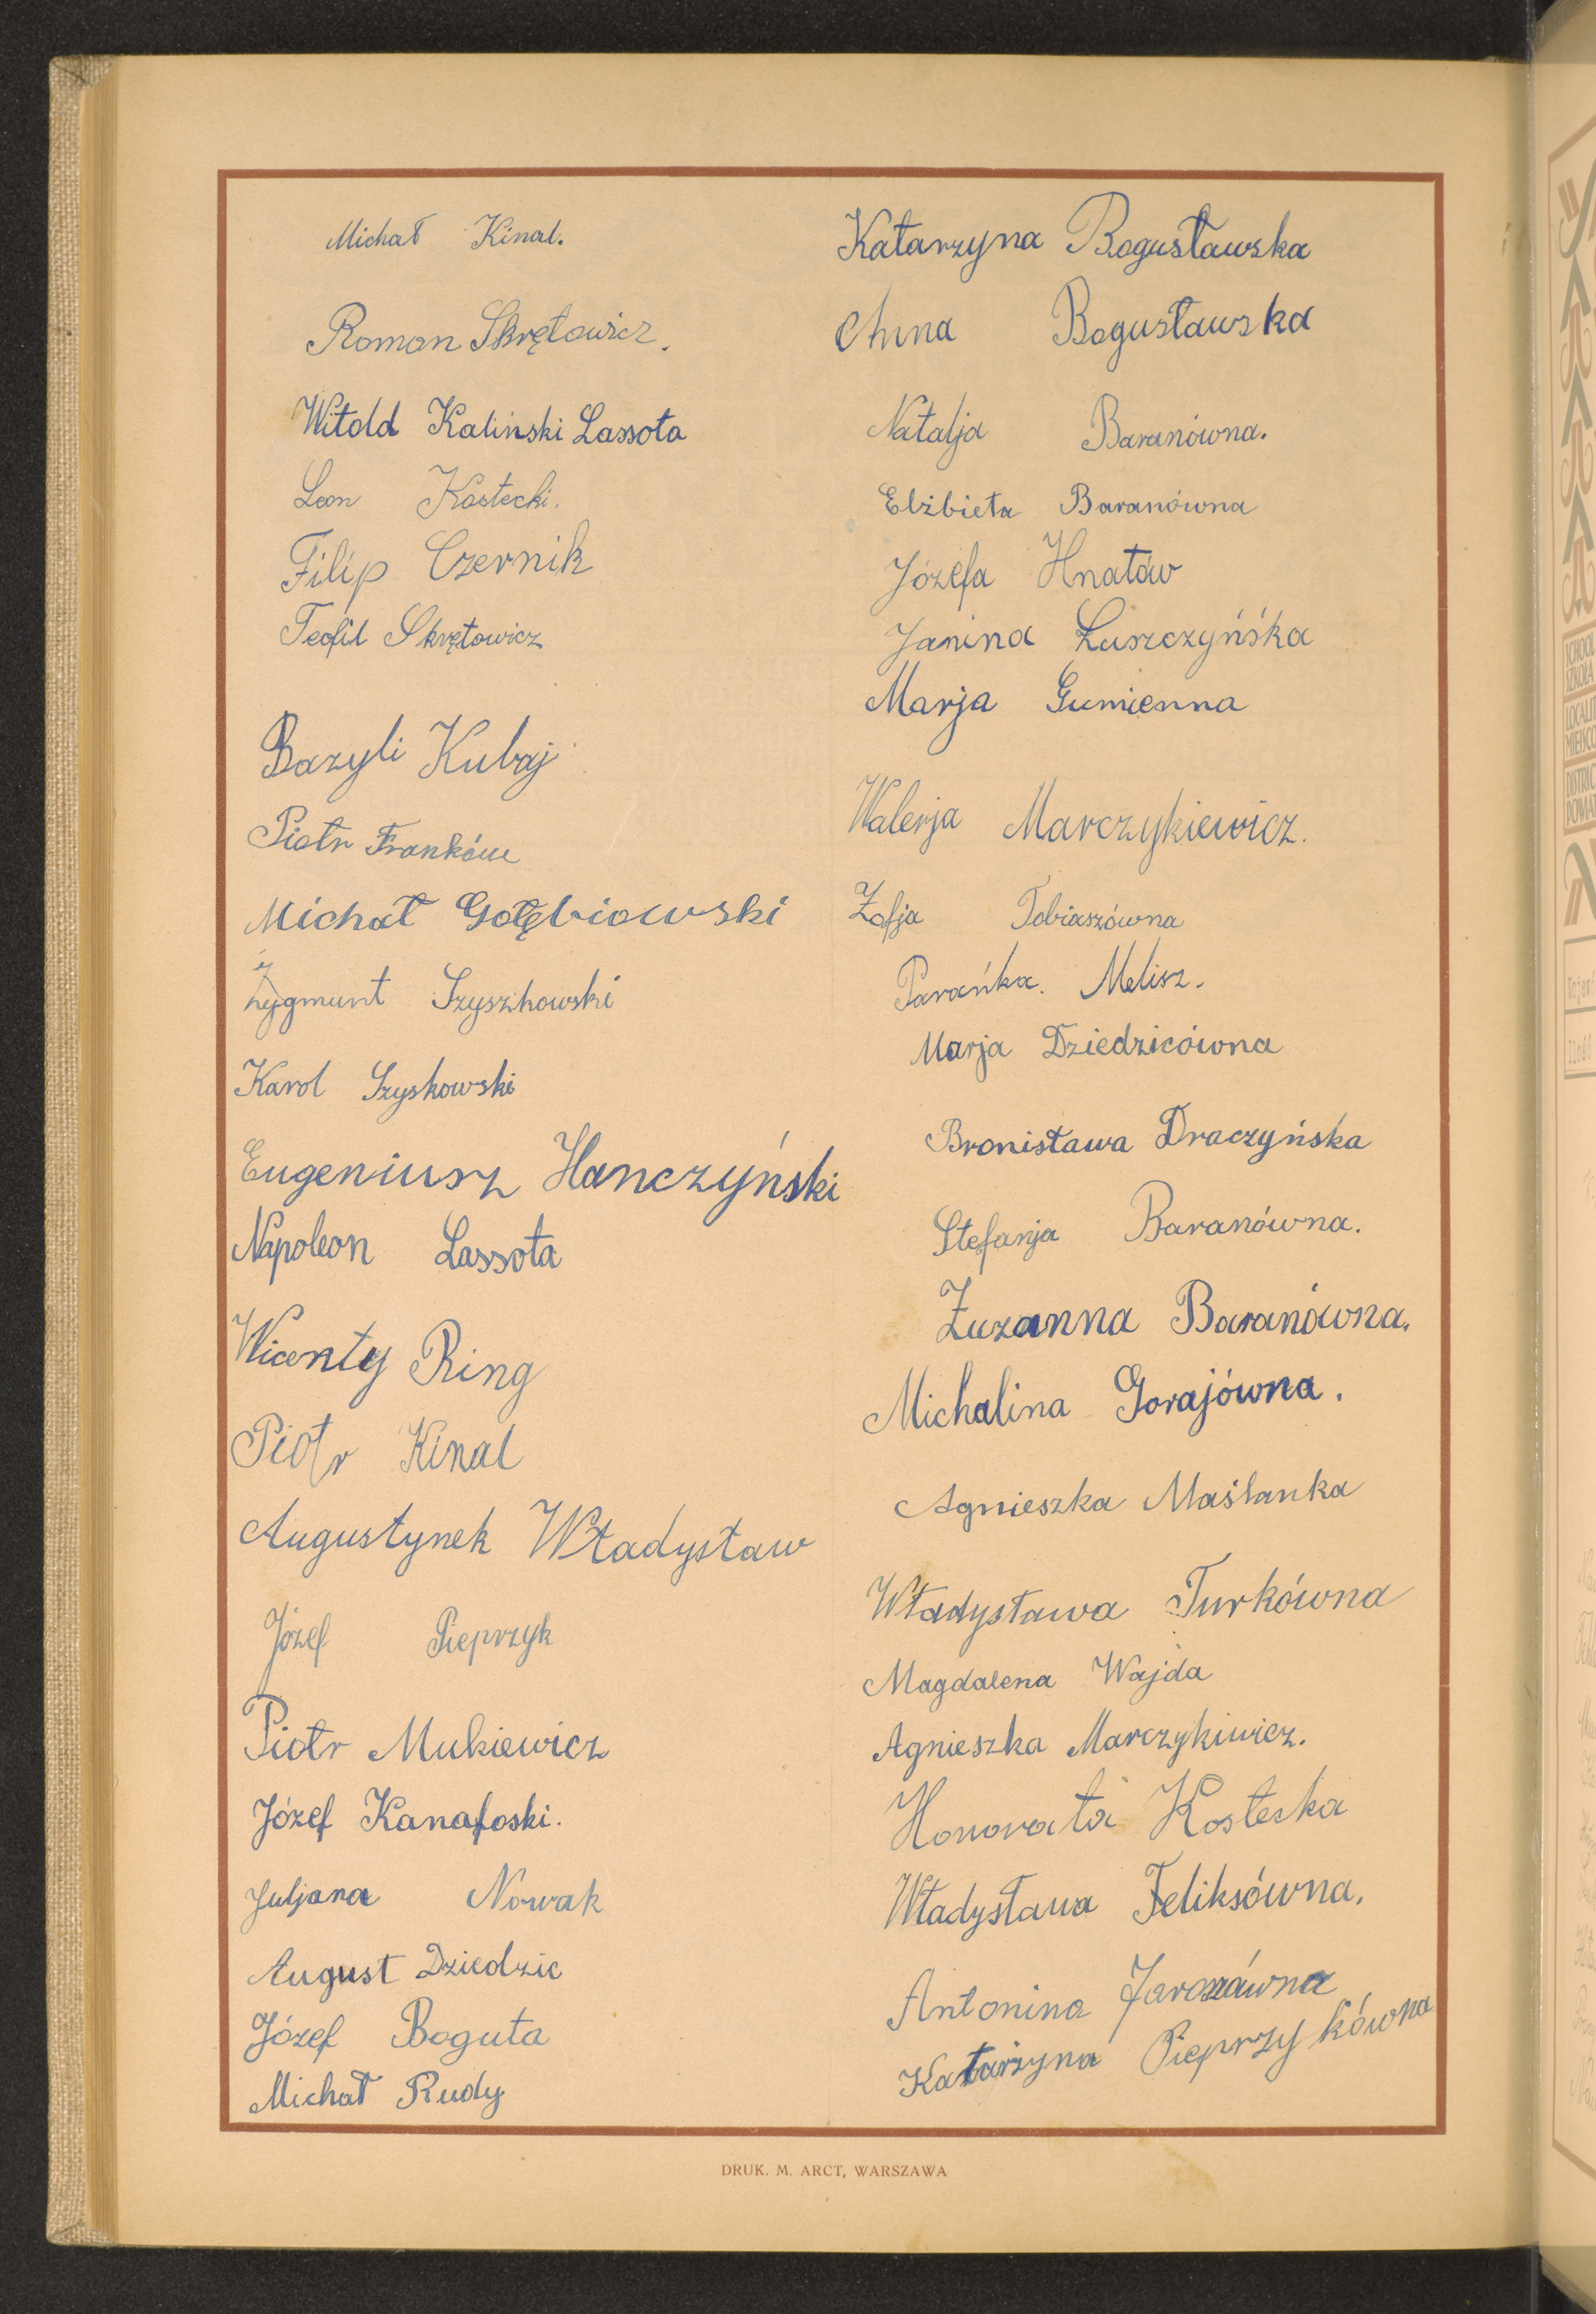 Michał Kinal.
Roman Skrętowicz.
Witold Kaliński Lassota
Leon Kostecki.
Filip Czernik
Teofil Skrętowicz
Bazyli Kubaj
Piotr Franków
Michał Gołębiowski
Zygmunt Szyszkowski
Karol Szyskowski
Eugeniusz Hanczyński
Napoleon Lassota
Wicenty Ring
Piotr Kinal
Augustynek Władysław
Józef Pieprzyk
Piotr Mukiewicz
Józef Kanafoski.
Juljana Nowak
August Dziedzic
Józef Boguta
Michał Rudy
Katarzyna Bogusławska
Anna Bogusławska
Natalja Baranówna.
Elżbieta Baranówna
Józefa Hnatów
Janina Łuszczyńska
Marja Gumienna
Walerja Marczykiewicz.
Zofja Tobiaszówna
Parańka. Melisz.
Marja Dziedzicówna
Bronisława Draczyńska
Stefanja Baranówna.
Zuzanna Baranówna.
Michalina Gorajówna.
Agnieszka Maślanka
Władysława Turkówna
Magdalena Wajda
Agnieszka Marczykiwicz.
Honorata Kosteska
Władysława Feliksówna.
Antonina
Katarzyna Pieprzykówna
DRUK. M. ARCT, WARSZAWA